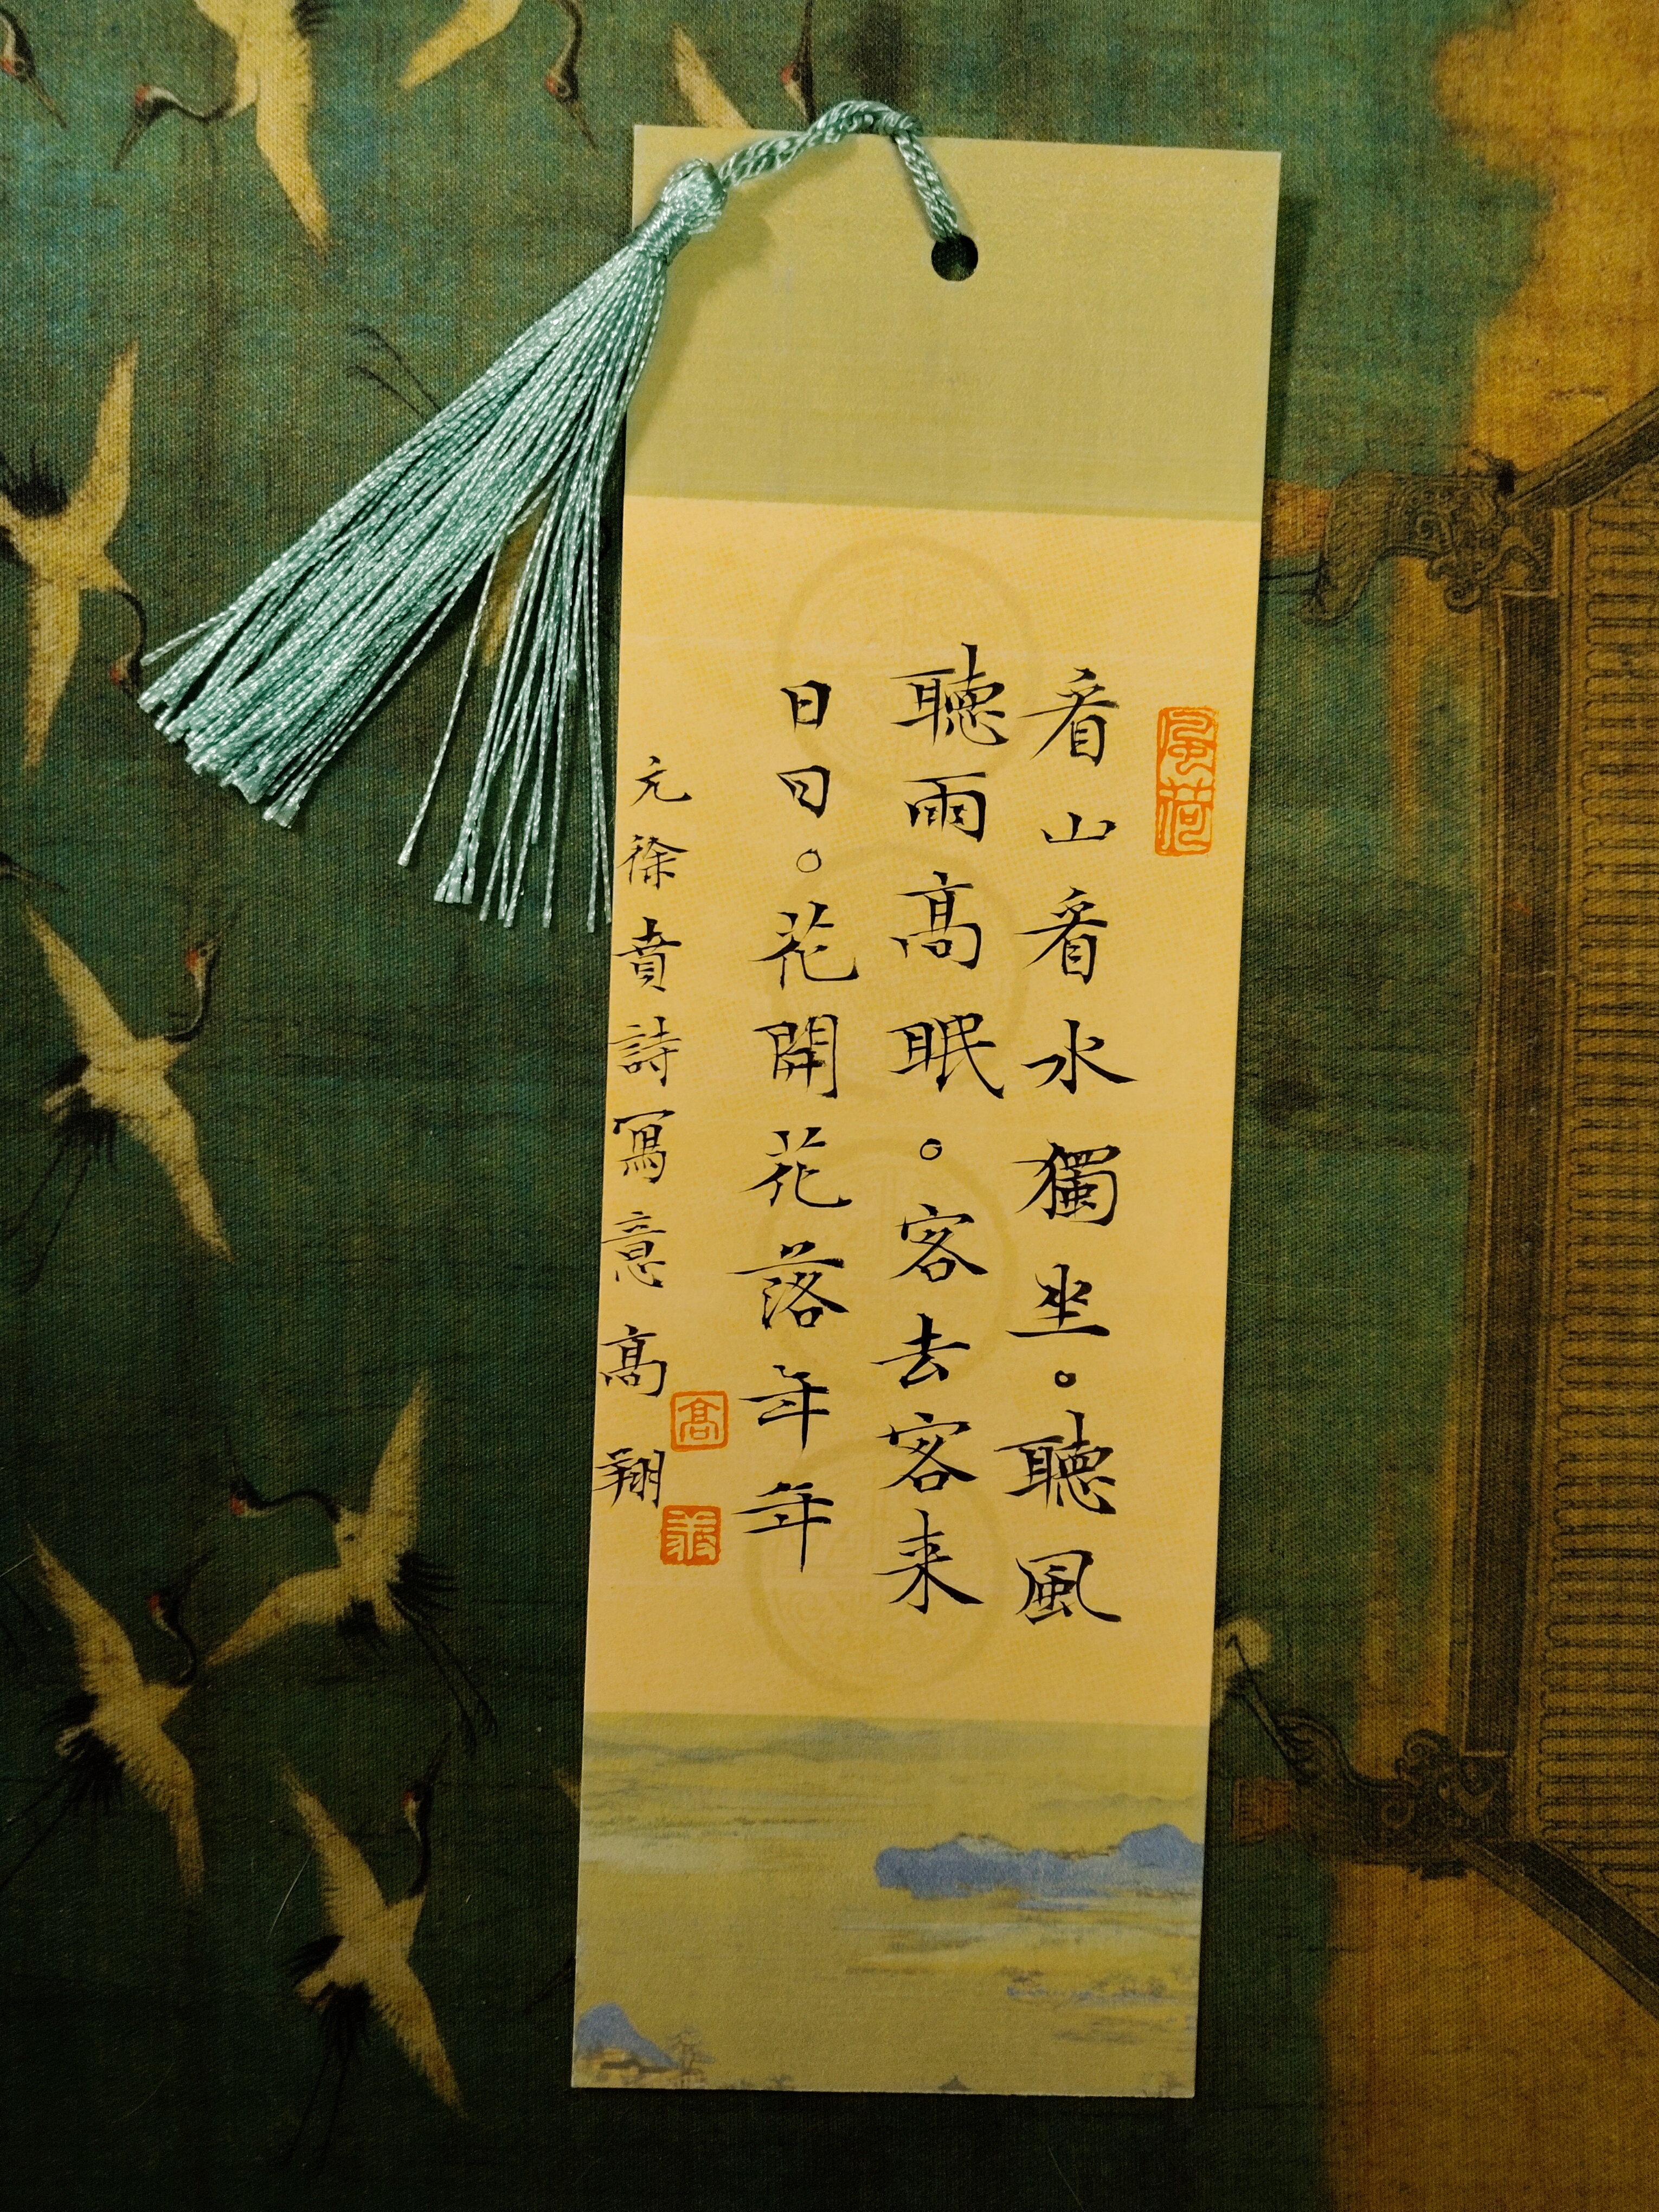 風荷
看山看水獨坐。聽風
聽雨高眠。客去客来
日日。花開花落年年
元徐賁詩寫意高翔
高
翔